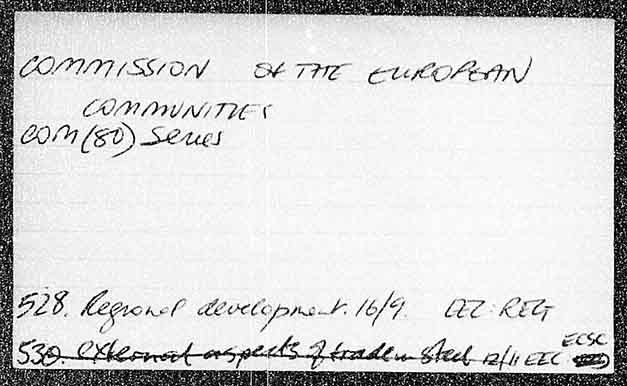 COMMISSION OF THE EUROPEAN
COMMUNITIES
COM(80) Series
528. Regional development. 16/9. EEC: REG
530. external aspects of trade in steel 12/11 EEC ECSC